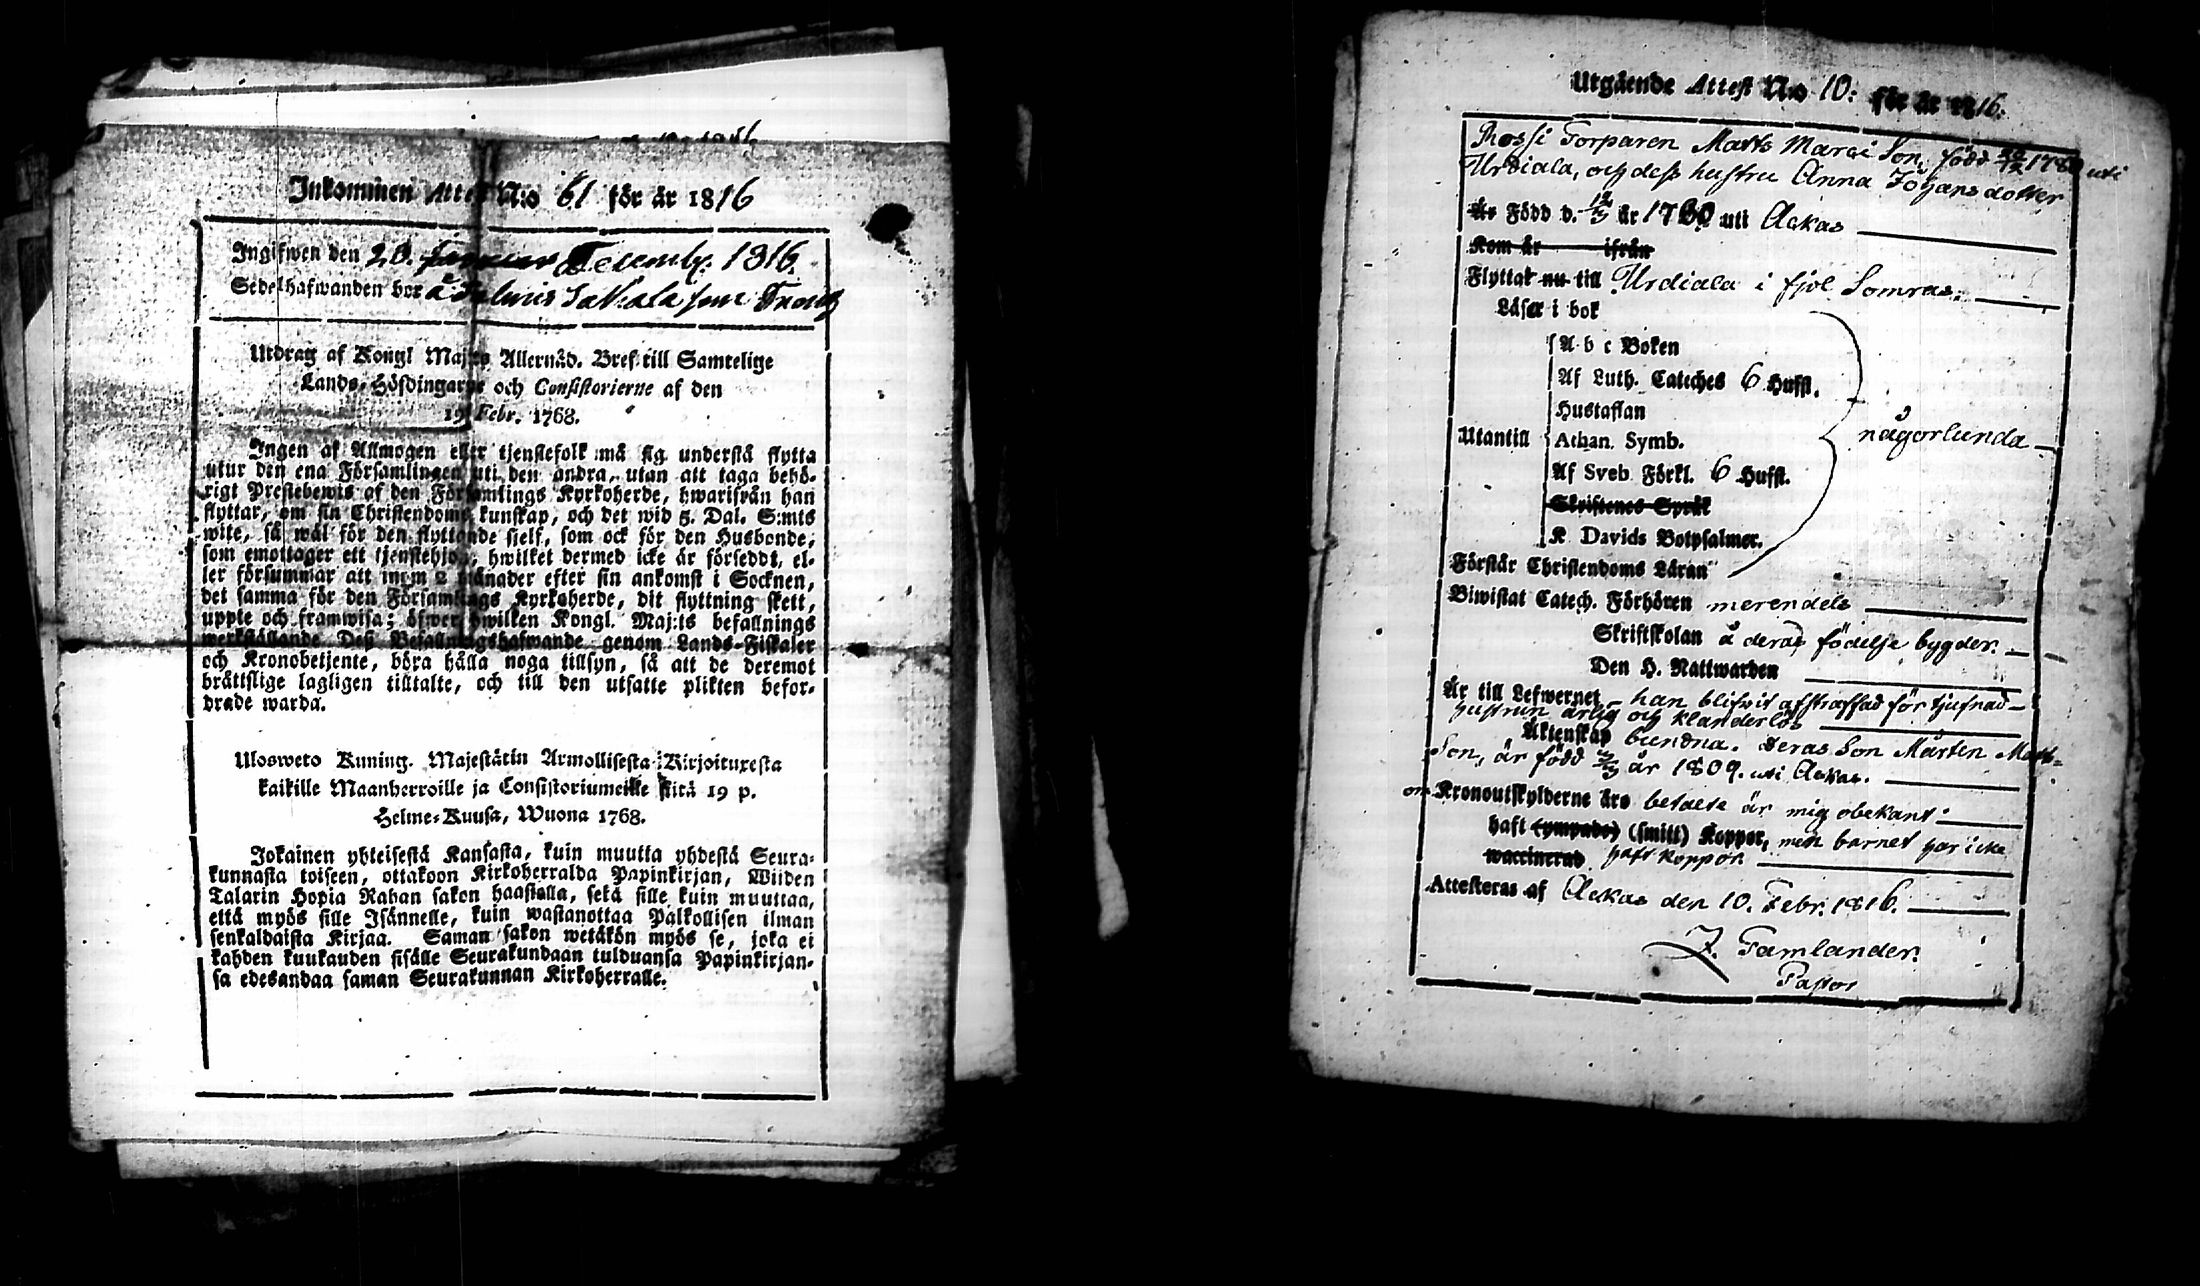 Inkommen Attest N:o 61 för år 1816
Ingifwen den 20. Decemb. 1816.
Sedelhafwanden bor å
Utdrag af Kongl Maj:ts Allernåd. Bref till Samtelige
Lands-Höfdingarne och Consistorierne af den
19 Febr. 1768.
Ingen af Allmogen eller tjenstefolk må sig understå flytta
utur den ena Församlingen uti den andra, utan att taga behö-
rigt Prestebewis af den Församlings Kyrkoherde, hwarifrån han
flyttar, om sin Christendoms kunskap, och det wid 5. Dal. S:mts
wite, så wäl för den flyttande sielf, som ock för den Husbonde,
som emottager ett tjenstehjon, hwilket dermed icke är förseddt, el-
ler försummar att inom 2 månader efter sin ankomst i Socknen,
det samma för den Församlings Kyrkoherde, dit flyttning skett,
uppte och framwisa; öfwer hwilken Kongl. Maj:ts befallnings
werkställande Deß Befallningshafwande genom Lands-Fiskaler
och Kronobetjente, böra hålla noga tillsyn, så att de deremot
brättslige lagligen tilltalte, och till den utsatte plikten befor-
drade warda.
Ulosweto Kuning. Majestätin Armollisesta Kirjoituxesta
kaikille Maanherroille ja Consistoriumeille siitä 19 p.
Helme-Kuusa, Wuona 1768.
Jokainen yhteisestä Kansasta, kuin muutta yhdestä Seura-
kunnasta toiseen, ottakoon Kirkoherralda Papinkirjan, Wiiden
Talarin Hopia Rahan sakon haastolla, sekä sille kuin muuttaa,
että myös sille Isännelle, kuin wastanottaa Palkollisen ilman
senkaldaista Kirjaa. Saman sakon wetäkön myös se, joka ei
kahden kuukauden sisälle Seurakundaan tulduansa Papinkirjan-
sa edesandaa saman Seurakunnan Kirkoherralle.
Utgående Attest N:o 10: för år 1816.
Torparen Matts Son, född 1780 uti
Urdiala, och dess hustru Anna Johansdotter
Är Född d. 12/3 år 1780 uti Ackas
Kom år ifrån
Flyttat nu till Urdiala i fjol Somras.
Läser i bok
A b c Boken
Af Luth. Catiches 6 Hufst.
Hustaflan
Utantill Athan. Symb. någorlunda
Af Sveb Förkl. 6 Hufst.
Skriftenes Språk
K. Davids Botpsalmer.
Förstår Christendoms Läran
Biwistat Catech. Förhören merendels
Skriftskolan å deras födelse bygder.
Den H. Nattwarden
Är till Lefwernet han blifvit afstraffad för tjufnad
hustrun ärlig och klanderlös
Äktenskap bundna. deras Son Mårten Matts-
Son, är född år 1809. uti Ackas.
om Kronoutskylderne äro betalte är mig obekant
haft (ympade) (smitt) Koppor, men barnet har icke
waccinerad haft koppor
Attesteras af Ackas den 10. Febr. 1816.
J. Tamlander.
Pastor